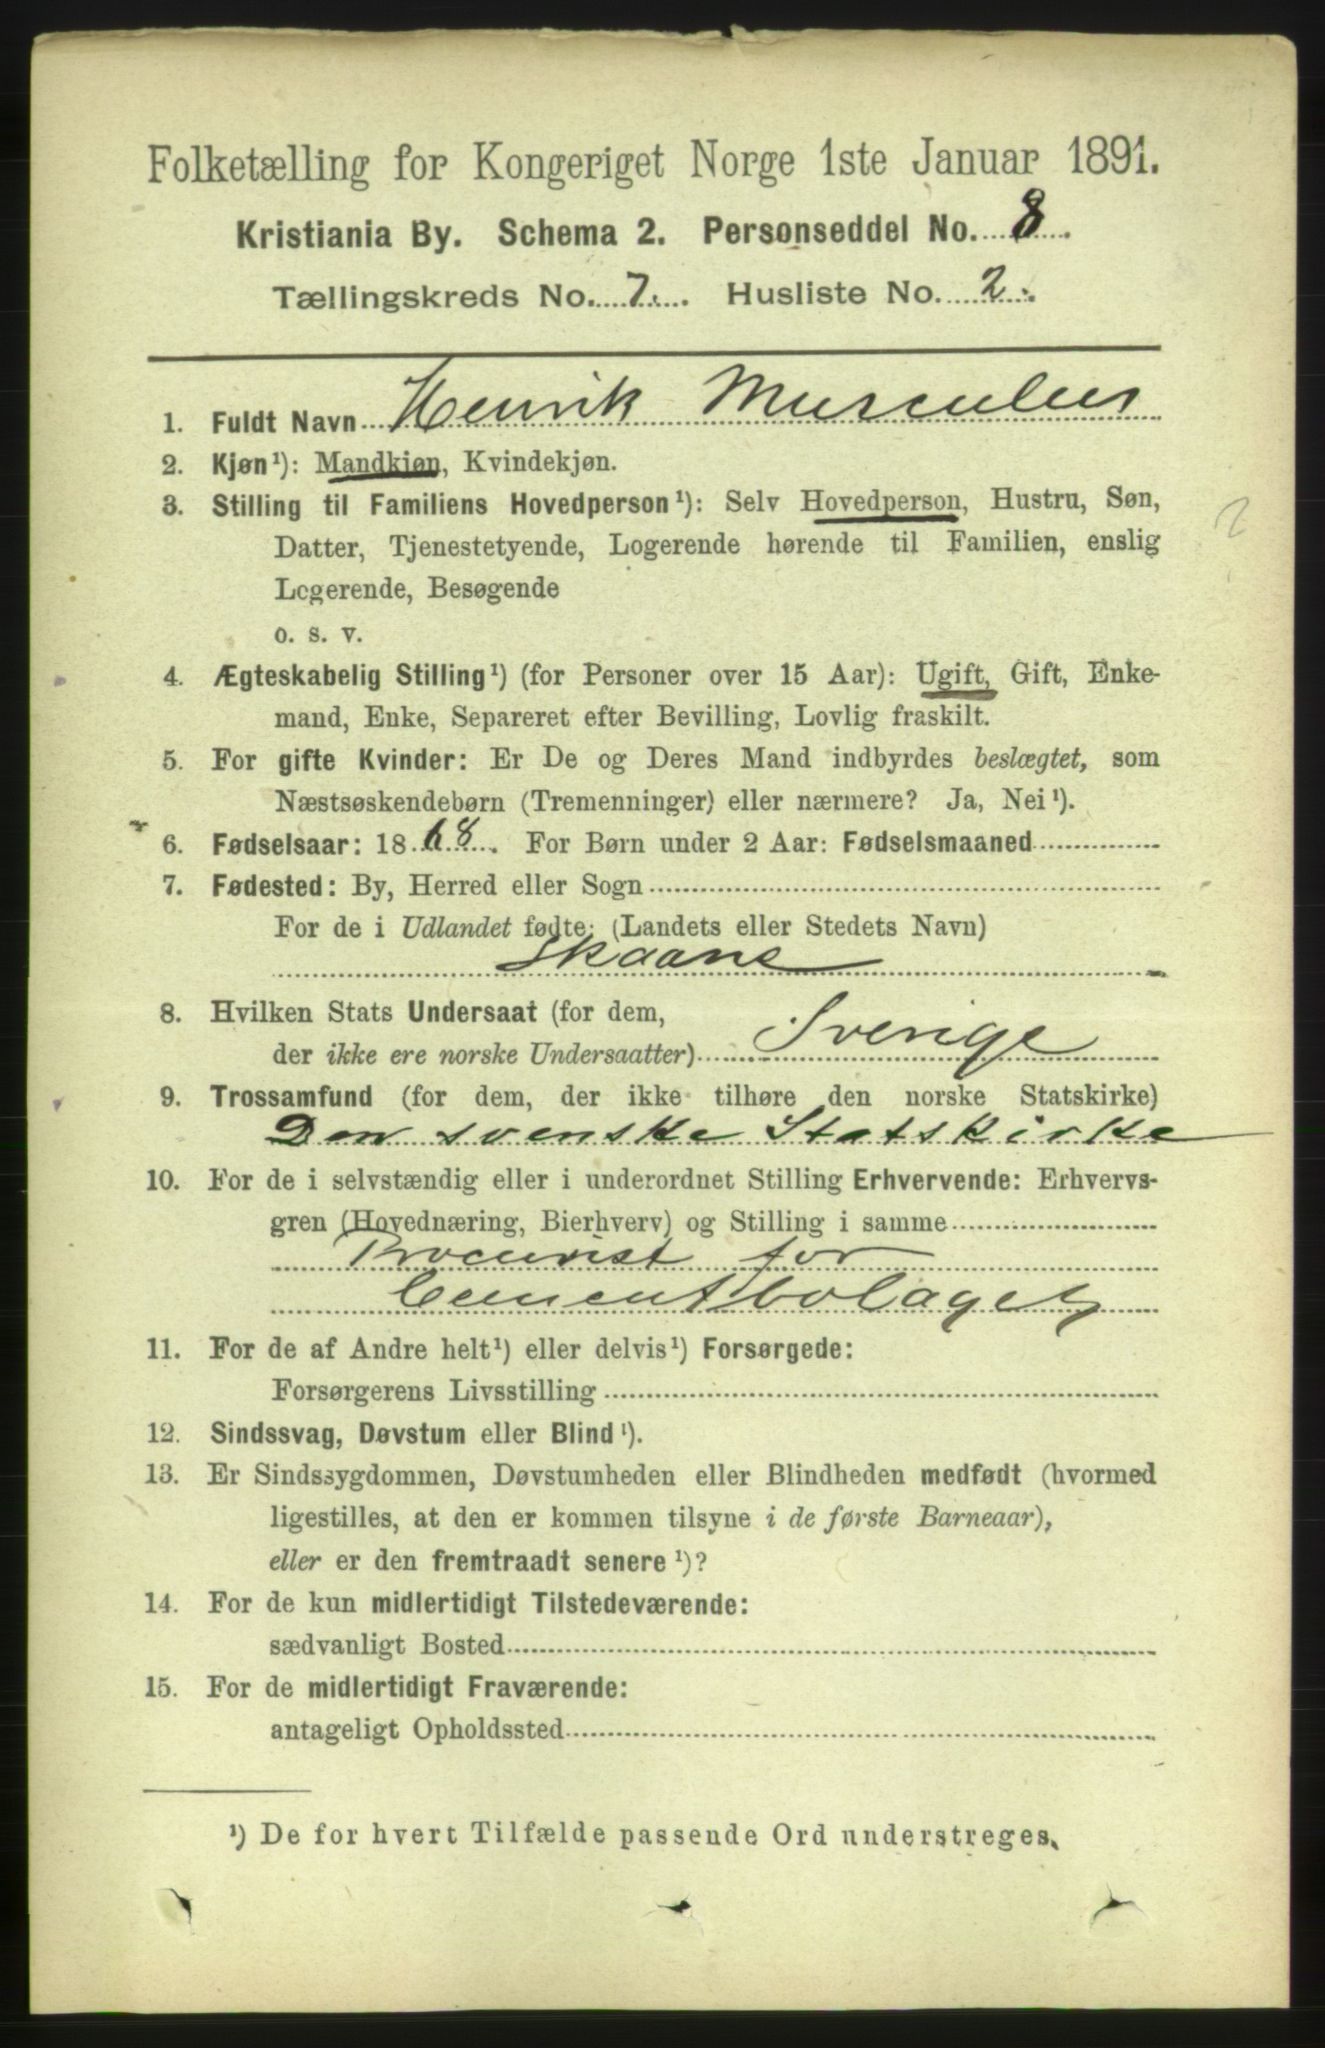 Folketælling for Kongeriget Norge 1ste Januar 1891.
Kristiania By. Schema 2. Personseddel No. 8.
Tællingskreds No. 7. Husliste No. 2.
1. Fuldt Navn Henrik Musculus
2. Kjøn¹): Mandkjøn, Kvindekjøn.
3. Stilling til Familiens Hovedperson¹): Selv Hovedperson, Hustru, Søn,
Datter, Tjenestetyende, Logerende hørende til Familien, enslig
Logerende, Besøgende
o. s. v.
4. Ægteskabelig Stilling¹) (for Personer over 15 Aar): Ugift, Gift, Enke-
mand, Enke, Separeret efter Bevilling, Lovlig fraskilt.
5. For gifte Kvinder: Er De og Deres Mand indbyrdes beslægtet, som
Næstsøskendebørn (Tremenninger) eller nærmere? Ja, Nei¹).
6. Fødselsaar: 1868. For Børn under 2 Aar: Fødselsmaaned
7. Fødested: By, Herred eller Sogn
For de i Udlandet fødte: (Landets eller Stedets Navn)
Skaane
8. Hvilken Stats Undersaat (for dem,
der ikke ere norske Undersaatter) Sverige
9. Trossamfund (for dem, der ikke tilhøre den norske Statskirke)
Den svenske Statskirke
10. For de i selvstændig eller i underordnet Stilling Erhvervende: Erhvervs-
gren (Hovednæring, Bierhverv) og Stilling i samme
Procurist for
Cementbolaget
11. For de af Andre helt¹) eller delvis¹) Forsørgede:
Forsørgerens Livsstilling
12. Sindssvag, Døvstum eller Blind¹).
13. Er Sindssygdommen, Døvstumheden eller Blindheden medfødt (hvormed
ligestilles, at den er kommen tilsyne i de første Barneaar),
eller er den fremtraadt senere¹)?
14. For de kun midlertidigt Tilstedeværende:
sædvanligt Bosted
15. For de midlertidigt Fraværende:
antageligt Opholdssted
¹) De for hvert Tilfælde passende Ord understreges.
2